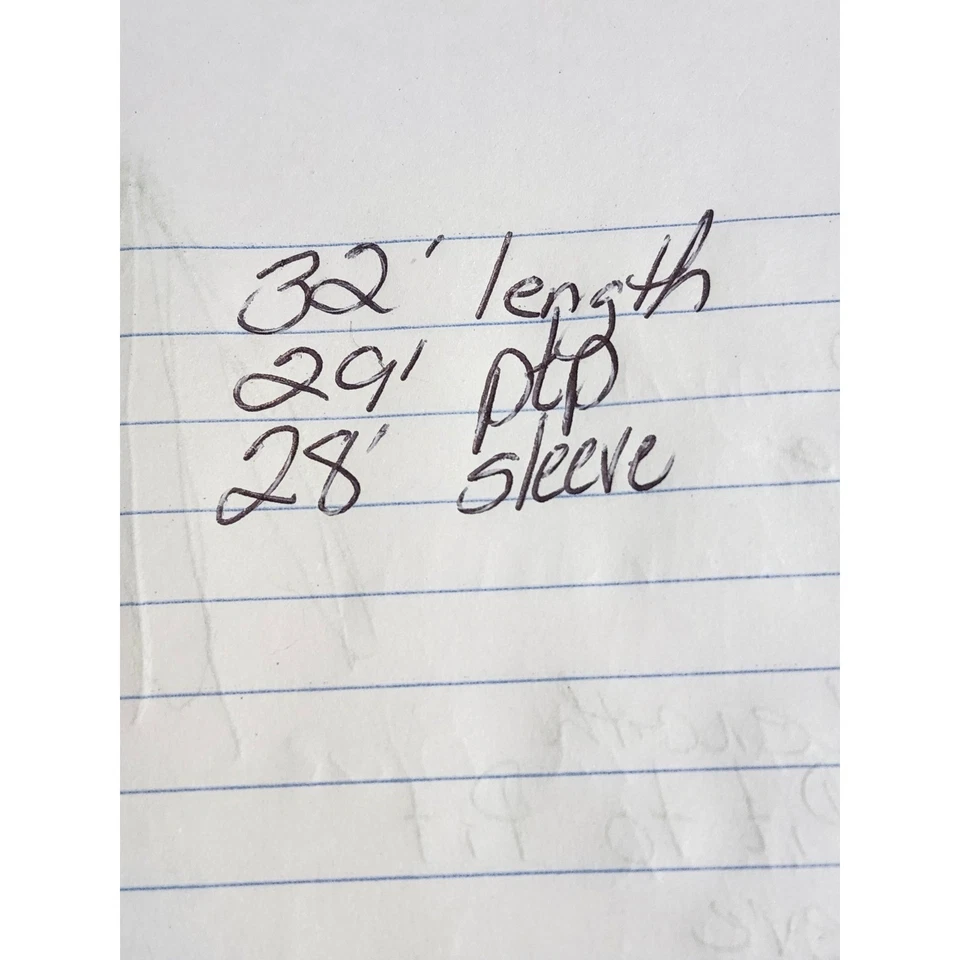 32' length
29' ptp
28' sleeve